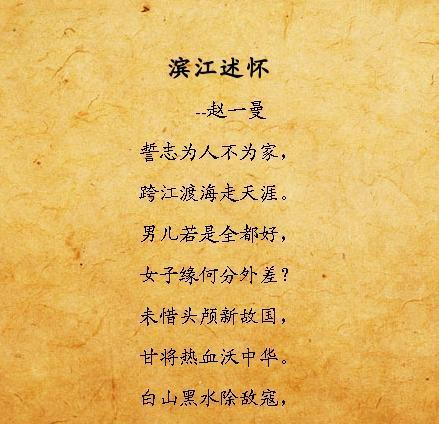 滨江述怀
--赵一曼
誓志为人不为家，
跨江渡海走天涯。
男儿若是全都好，
女子缘何分外差？
未惜头颅新故国，
甘将热血沃中华。
白山黑水除敌寇，